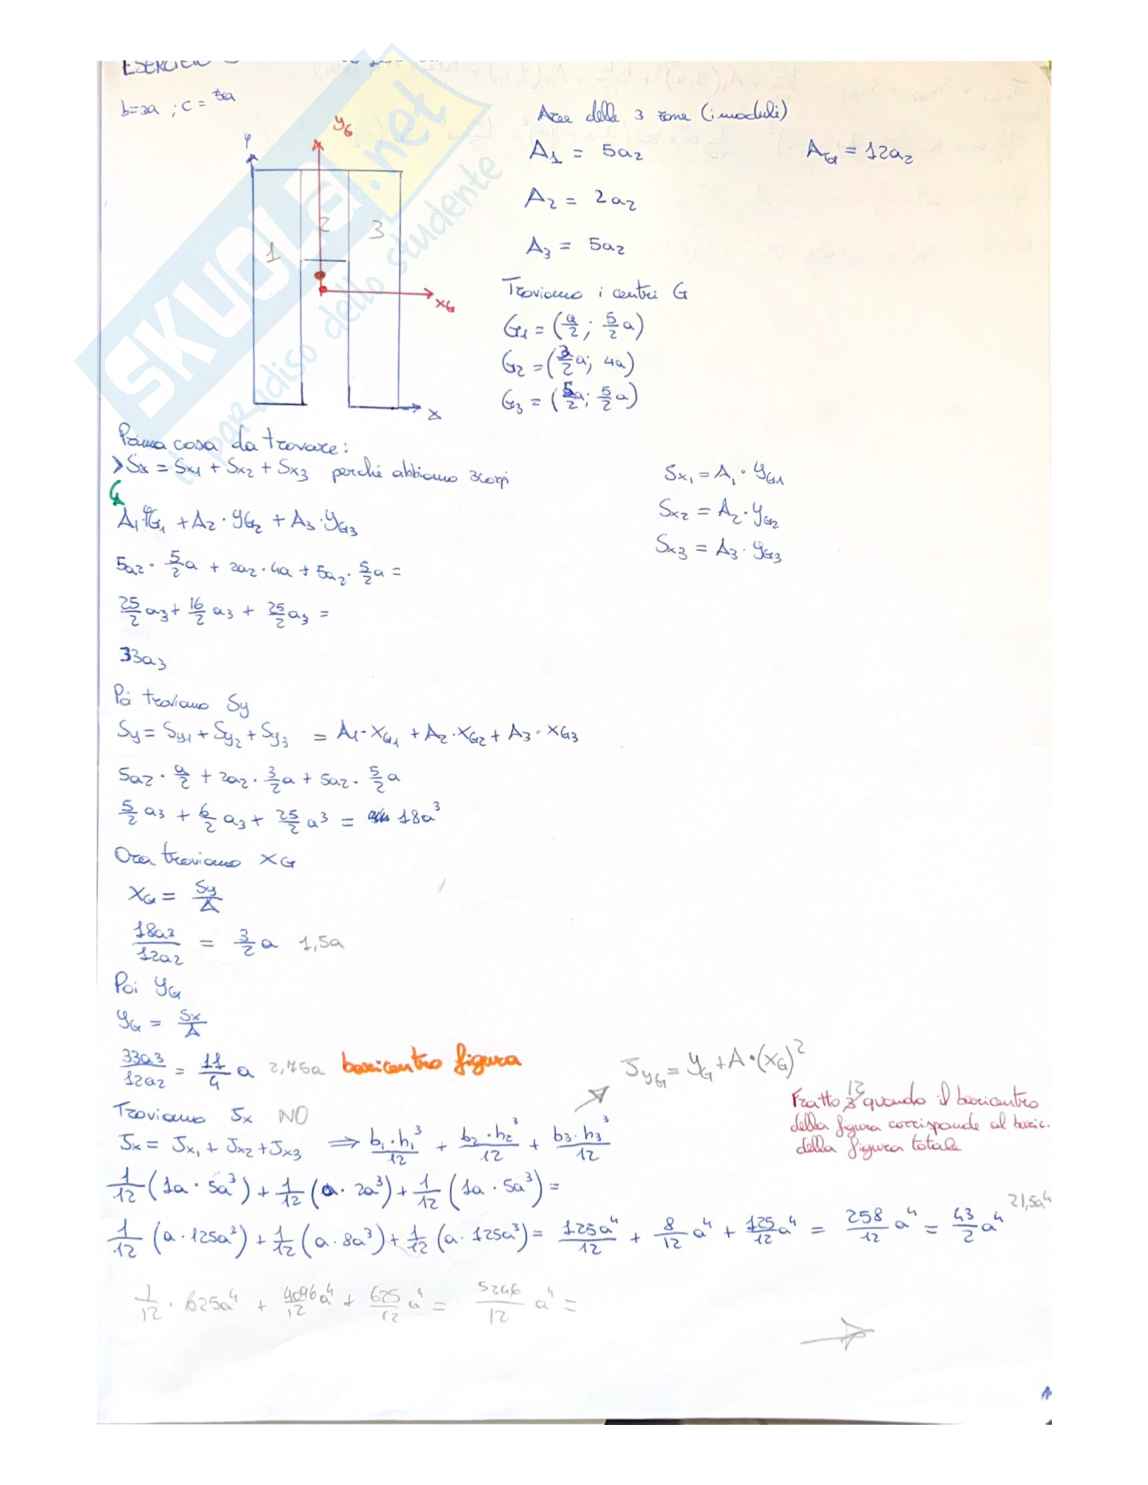 ESERCIZIO
b=3a ; c = 5a
Aree delle 3 zone (i moduli)
A1 = 5a2
AG = 12a2
A2 = 2a2
A3 = 5a2
y
yG
1
2
3
xG
x
Troviamo i centri G
G1 = (a/2 ; 5/2 a)
G2 = (3/2 a; 4a)
G3 = (5/2 a; 5/2 a)
Prima cosa da trovare:
Sx = Sx1 + Sx2 + Sx3 perché abbiamo 3 corpi
Sx1 = A1 · yG1
Sx2 = A2 · yG2
Sx3 = A3 · yG3
A1·yG1 + A2 · yG2 + A3 · yG3
5a2 · 5/2 a + 2a2 · 4a + 5a2 · 5/2 a =
25/2 a3 + 16/2 a3 + 25/2 a3 =
33a3
Poi troviamo Sy
Sy = Sy1 + Sy2 + Sy3 = A1 · xG1 + A2 · xG2 + A3 · xG3
5a2 · a/2 + 2a2 · 3/2 a + 5a2 · 5/2 a
5/2 a3 + 6/2 a3 + 25/2 a³ = 18a³
Ora troviamo xG
xG = Sy/A
18a3/12a2 = 3/2 a 1,5a
Poi yG
yG = Sx/A
33a3/12a2 = 11/4 a 2,75a baricentro figura
JyG = yG + A · (xG)²
Fratto 12 quando il baricentro
della figura corrisponde al baric.
della figura totale
Troviamo Jx NO
Jx = Jx1 + Jx2 + Jx3 ⇒ b1·h1³/12 + b2·h2³/12 + b3·h3³/12
1/12 (1a · 5a³) + 1/12 (a · 2a³) + 1/12 (1a · 5a³) =
1/12 (a · 125a³) + 1/12 (a · 8a³) + 1/12 (a · 125a³) = 125a⁴/12 + 8/12 a⁴ + 125/12 a⁴ = 258/12 a⁴ = 43/2 a⁴ 21,5a⁴
1/12 · 625a⁴ + 4096a⁴/12 + 625/12 a⁴ = 5246/12 a⁴ =
SKUOLA.net
il paradiso dello studente